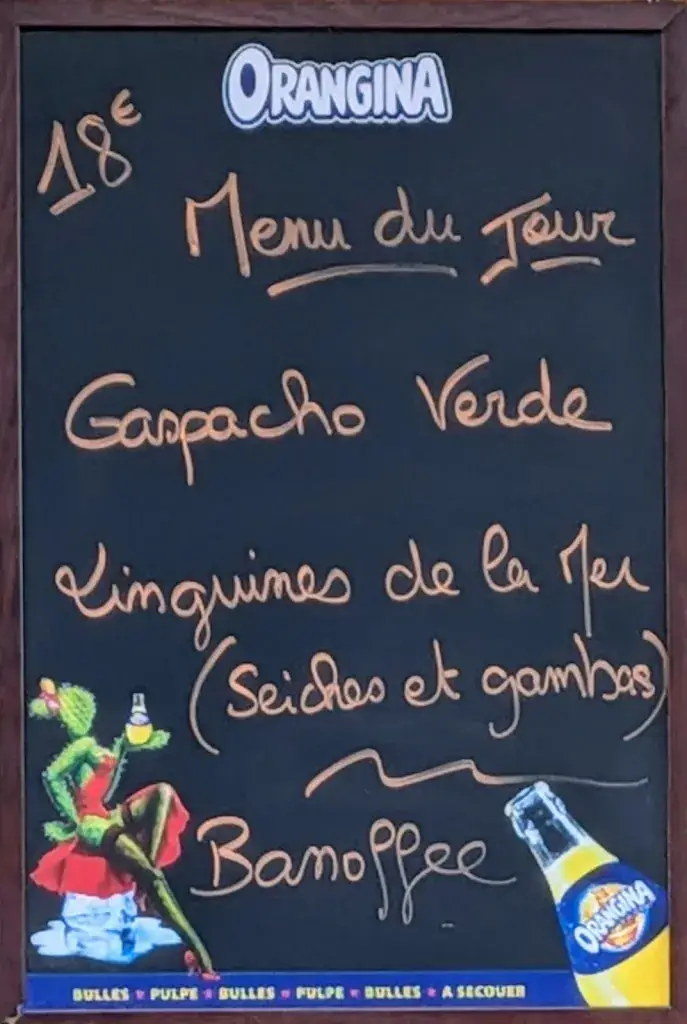 ORANGINA
18€
Menu du Jour
Gaspacho Verde
Linguines de la Mer
(Seiches et gambas)
Banoffee
ORANGINA
BULLES ★ PULPE ★ BULLES ★ PULPE ★ BULLES ★ A SECOUER